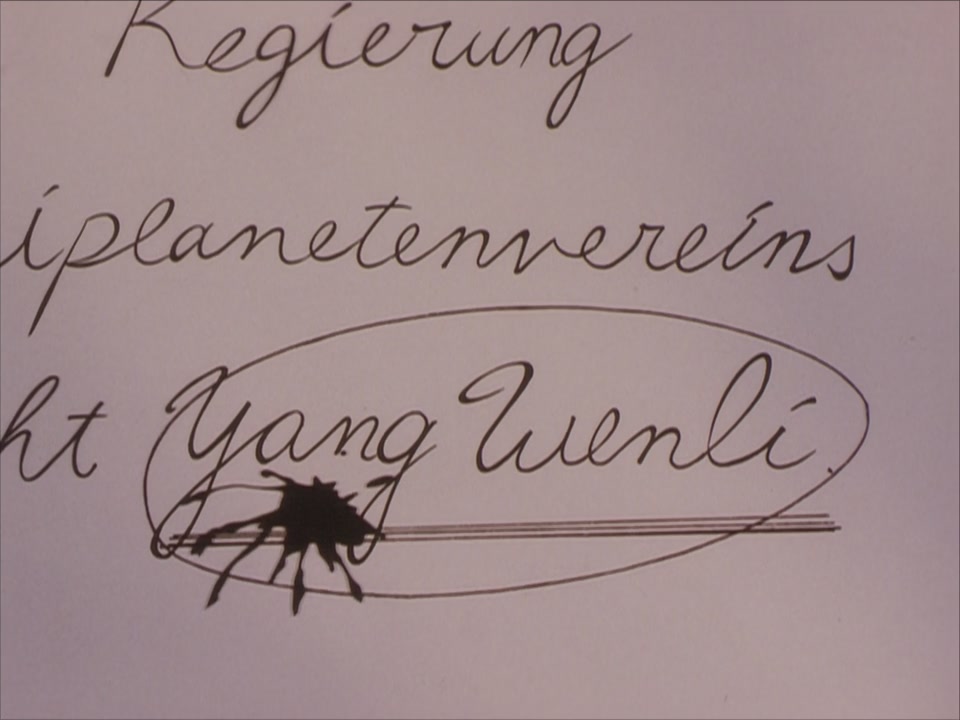 Regierung
iplanetenvereins
ht Yang Wenli